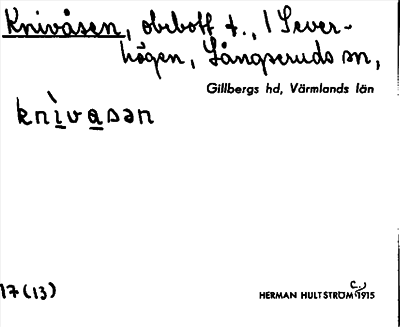 Knivåsen, obebott t., / Sever-
högen, Långseruds sn,
Gillbergs hd, Värmlands län
knìvasən
17 (13)
HERMAN HULTSTRÖM c. 1915